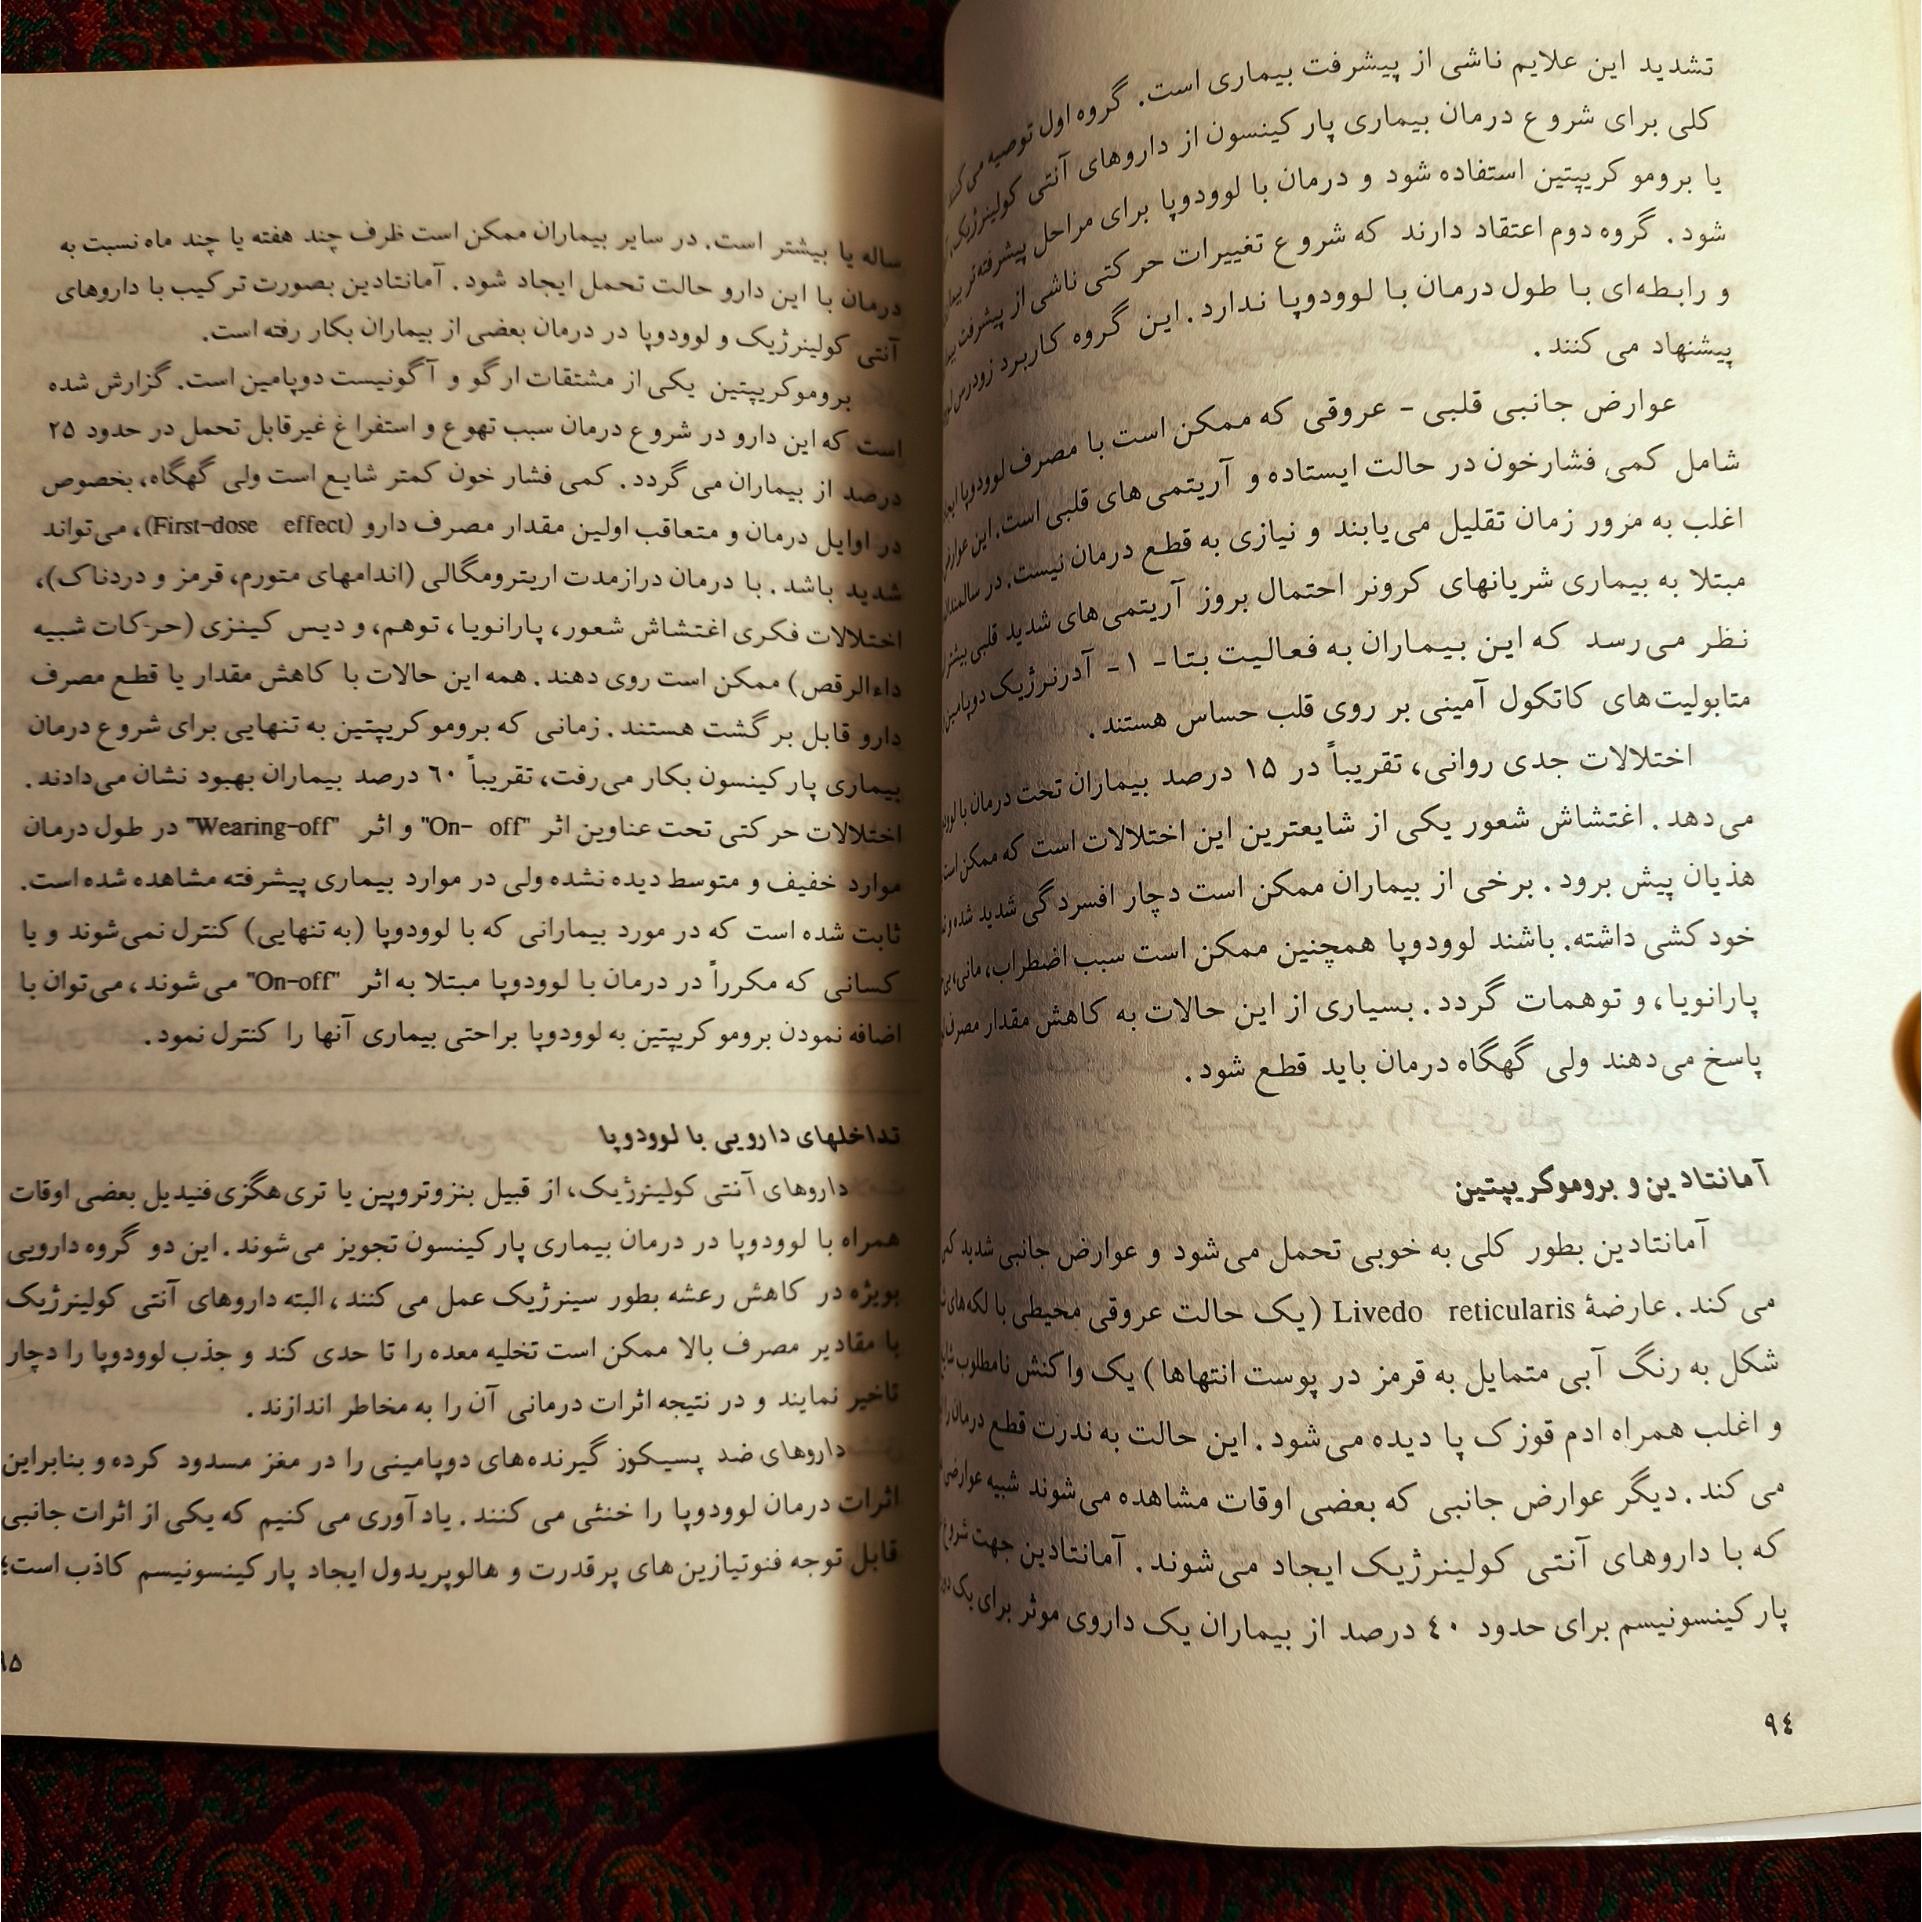 تشدید این علایم ناشی از پیشرفت بیماری است. گروه اول توصیه می‌کنند
کلی برای شروع درمان بیماری پارکینسون از داروهای آنتی کولینرژیک،
یا بروموکریپتین استفاده شود و درمان با لوودوپا برای مراحل پیشرفته‌تر
شود. گروه دوم اعتقاد دارند که شروع تغییرات حرکتی ناشی از پیشرفت
و رابطه‌ای با طول درمان با لوودوپا ندارد. این گروه کاربرد زودرس
پیشنهاد می کنند.
عوارض جانبی قلبی - عروقی که ممکن است با مصرف لوودوپا
شامل کمی فشارخون در حالت ایستاده و آریتمی‌های قلبی است. این عوارض
اغلب به مرور زمان تقلیل می‌یابند و نیازی به قطع درمان نیست. در
مبتلا به بیماری شریانهای کرونر احتمال بروز آریتمی‌های شدید قلبی بیشتر
نظر می‌رسد که این بیماران به فعالیت بتا- ۱- آدرنرژیک
متابولیت‌های کاتکول آمینی بر روی قلب حساس هستند.
اختلالات جدی روانی، تقریباً در ۱۵ درصد بیماران تحت درمان با
می‌دهد. اغتشاش شعور یکی از شایعترین این اختلالات است که ممکن است
هذیان پیش برود. برخی از بیماران ممکن است دچار افسردگی شدید شده
خودکشی داشته. باشند لوودوپا همچنین ممکن است سبب اضطراب، مانی،
پارانویا، و توهمات گردد. بسیاری از این حالات به کاهش مقدار مصرف
پاسخ می‌دهند ولی گهگاه درمان باید قطع شود.
آمانتادین و بروموکریپتین
آمانتادین بطور کلی به خوبی تحمل می‌شود و عوارض جانبی شدید
می کند. عارضهٔ Livedo reticularis (یک حالت عروقی محیطی با لکه‌های
شکل به رنگ آبی متمایل به قرمز در پوست انتهاها) یک واکنش نامطلوب
و اغلب همراه ادم قوزک پا دیده می‌شود. این حالت به ندرت قطع درمان را
می کند. دیگر عوارض جانبی که بعضی اوقات مشاهده می‌شوند شبیه عوارضی
که با داروهای آنتی کولینرژیک ایجاد می‌شوند. آمانتادین جهت شروع
پارکینسونیسم برای حدود ۴۰ درصد از بیماران یک داروی موثر برای یک
۹۴
ساله یا بیشتر است. در سایر بیماران ممکن است ظرف چند هفته یا چند ماه نسبت به
درمان با این دارو حالت تحمل ایجاد شود. آمانتادین بصورت ترکیب با داروهای
آنتی کولینرژیک و لوودوپا در درمان بعضی از بیماران بکار رفته است.
بروموکریپتین یکی از مشتقات ارگو و آگونیست دوپامین است. گزارش شده
است که این دارو در شروع درمان سبب تهوع و استفراغ غیرقابل تحمل در حدود ۲۵
درصد از بیماران می گردد. کمی فشار خون کمتر شایع است ولی گهگاه، بخصوص
در اوایل درمان و متعاقب اولین مقدار مصرف دارو (First-dose effect)، می‌تواند
شدید باشد. با درمان درازمدت اریترومگالی (اندامهای متورم، قرمز و دردناک)،
اختلالات فکری اغتشاش شعور، پارانویا، توهم، و دیس کینزی (حرکات شبیه
داءالرقص) ممکن است روی دهند. همه این حالات با کاهش مقدار یا قطع مصرف
دارو قابل برگشت هستند. زمانی که بروموکریپتین به تنهایی برای شروع درمان
بیماری پارکینسون بکار می‌رفت، تقریباً ۶۰ درصد بیماران بهبود نشان می‌دادند.
اختلالات حرکتی تحت عناوین اثر "On- off" و اثر "Wearing-off" در طول درمان
موارد خفیف و متوسط دیده نشده ولی در موارد بیماری پیشرفته مشاهده شده است.
ثابت شده است که در مورد بیمارانی که با لوودوپا (به تنهایی) کنترل نمی‌شوند و یا
کسانی که مکرراً در درمان با لوودوپا مبتلا به اثر "On-off" می‌شوند، می‌توان با
اضافه نمودن بروموکریپتین به لوودوپا براحتی بیماری آنها را کنترل نمود.
تداخلهای دارویی با لوودوپا
داروهای آنتی کولینرژیک، از قبیل بنزوتروپین یا تری‌هگزی‌فنیدیل بعضی اوقات
همراه با لوودوپا در درمان بیماری پارکینسون تجویز می‌شوند. این دو گروه دارویی
بویژه در کاهش رعشه بطور سینرژیک عمل می کنند، البته داروهای آنتی کولینرژیک
با مقادیر مصرف بالا ممکن است تخلیه معده را تا حدی کند و جذب لوودوپا را دچار
تاخیر نمایند و در نتیجه اثرات درمانی آن را به مخاطر اندازند.
داروهای ضد پسیکوز گیرنده‌های دوپامینی را در مغز مسدود کرده و بنابراین
اثرات درمان لوودوپا را خنثی می کنند. یادآوری می کنیم که یکی از اثرات جانبی
قابل توجه فنوتیازین‌های پرقدرت و هالوپریدول ایجاد پارکینسونیسم کاذب است؛
۹۵